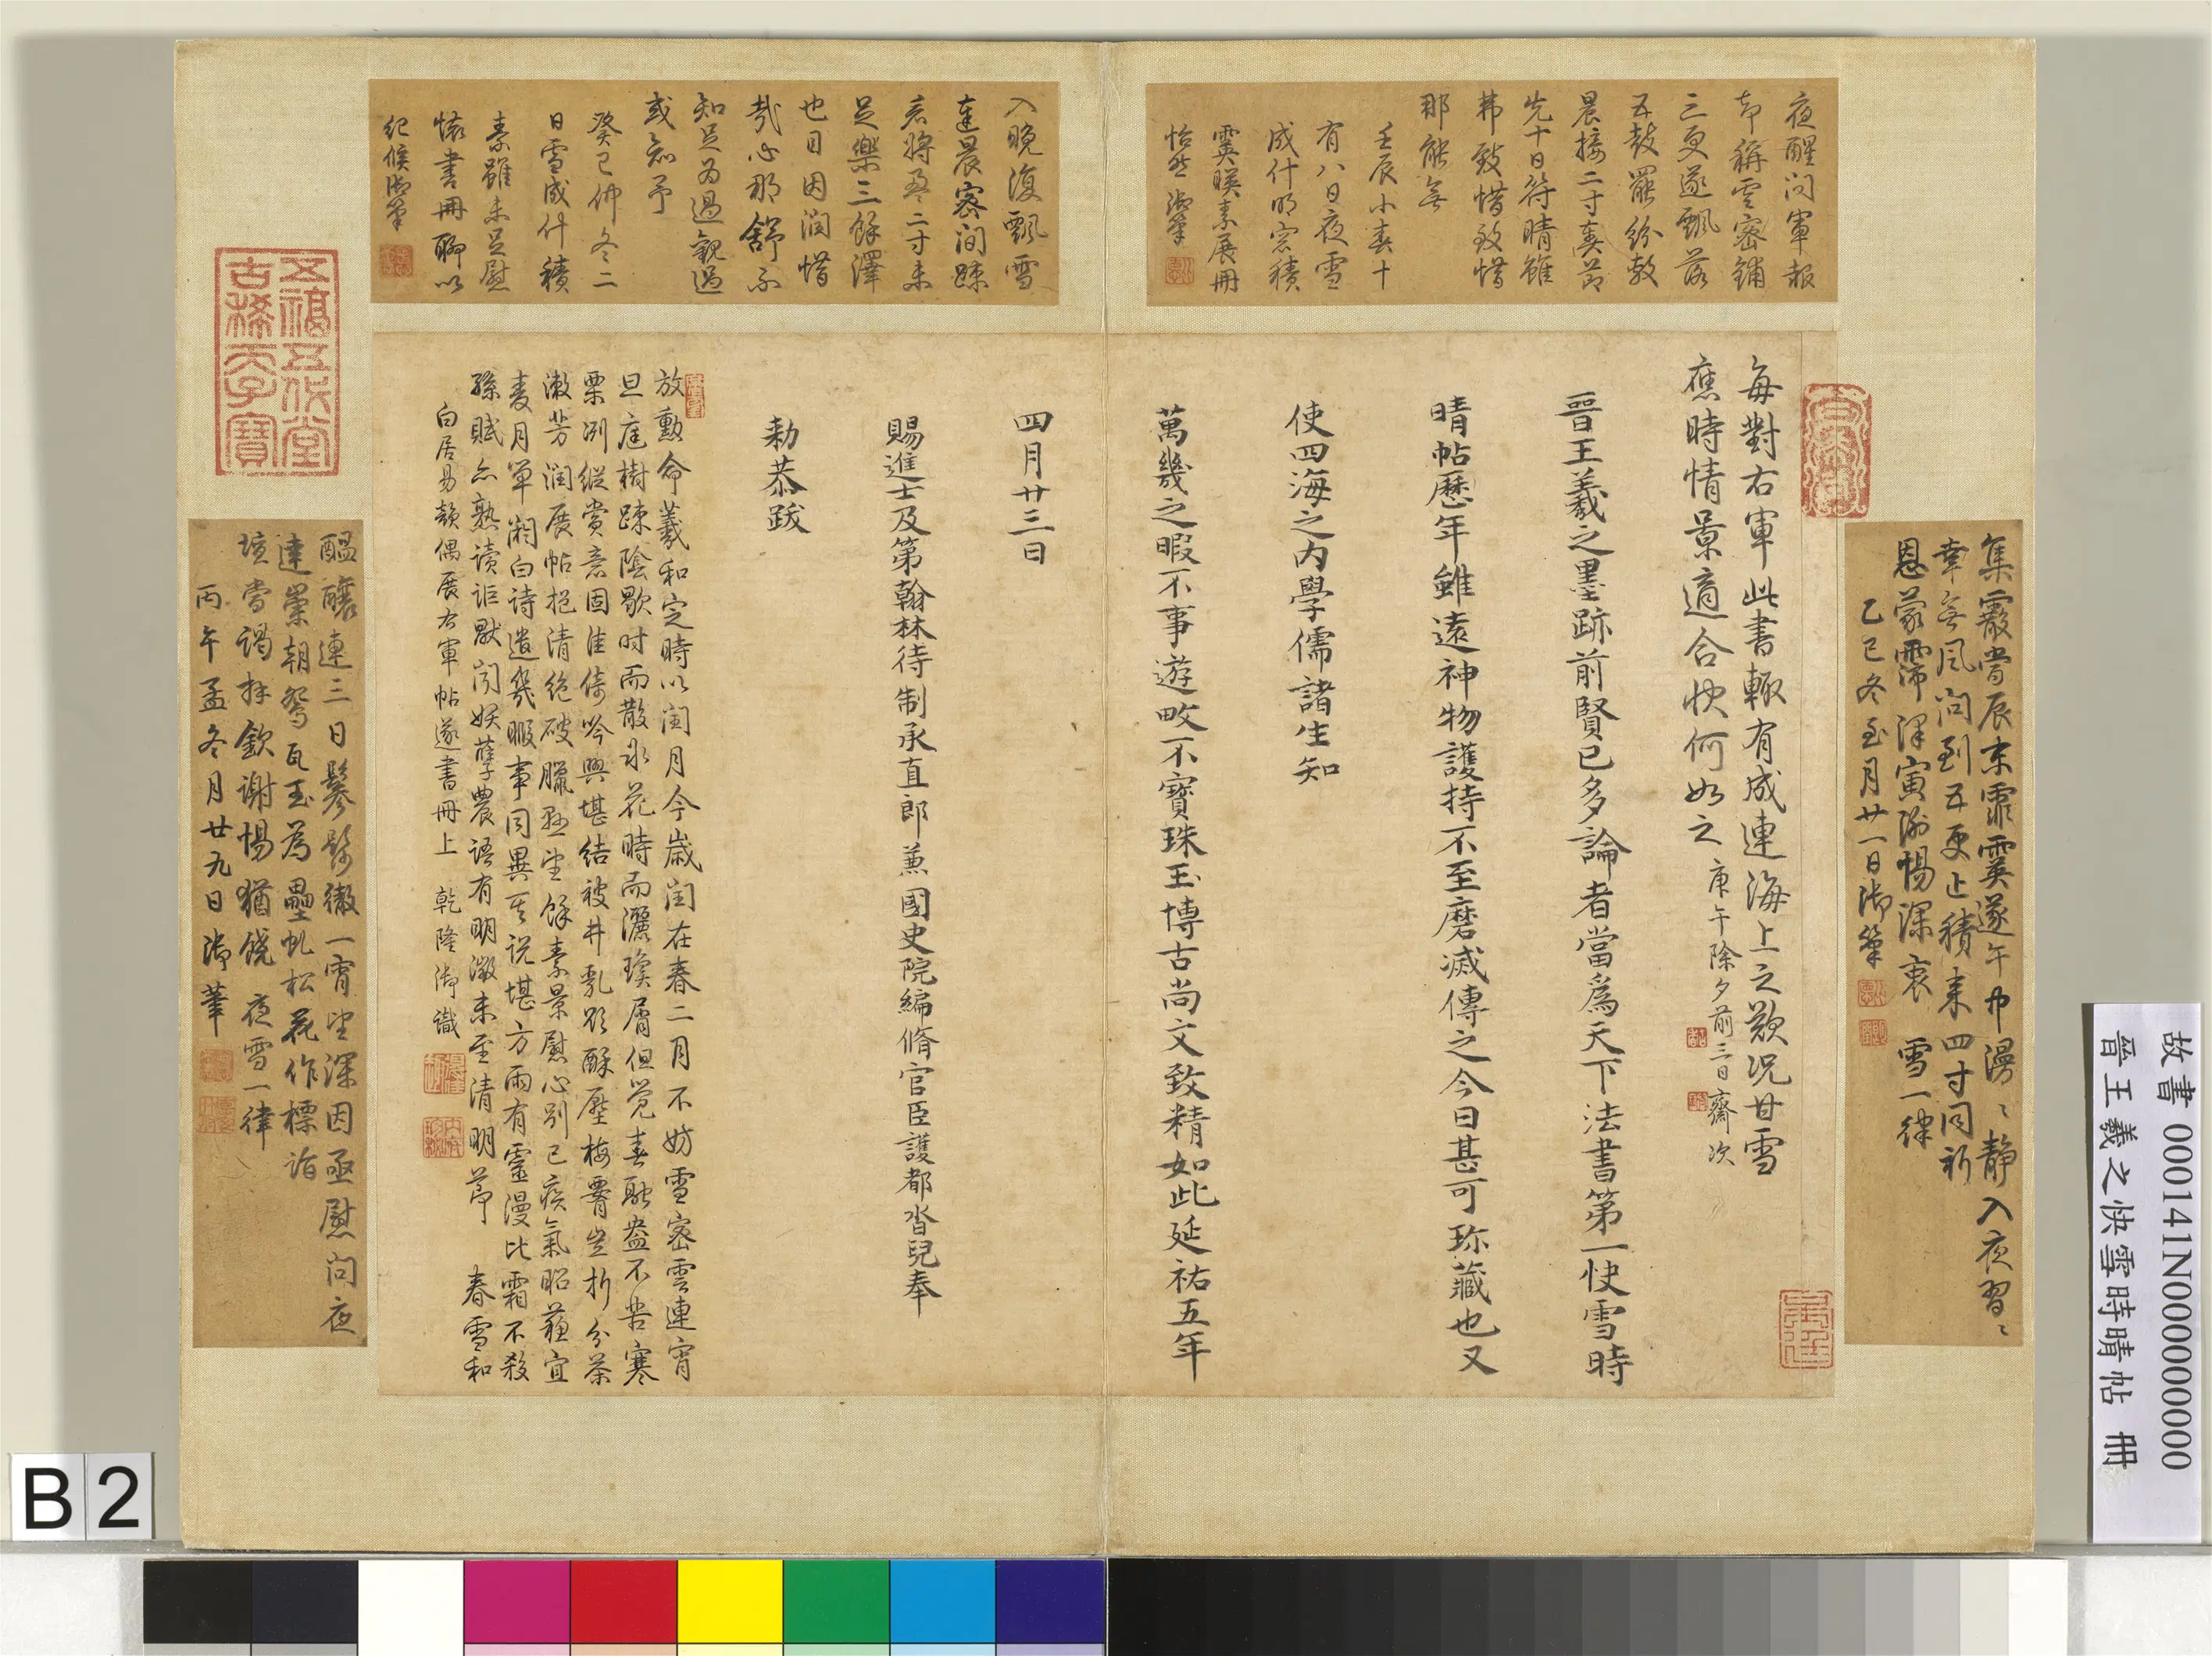 夜醒问軍報
却稱雲密鋪
三更遂飄落
五鼓罷紛敷
晨接二寸奏節
先十日符晴雖
弗致惜致惜
那能無
壬辰小春十
有八日夜雪
成什明窓積
霙暎素展冊
怡然御筆
入晚復飄雪
達晨密間踈
者將盈二寸未
足樂三餘澤
也目因潤惜
哉心那舒不
知足為過觀過
或知予
癸巳仲冬二
日雪成什積
素雖未足慰
懷書冊聊以
紀候御筆
五福五代堂
古稀天子寶
集霰當辰末霏霙遂午中漫〻静入夜習〻
幸無風问到五更止積来四寸同祈
恩蒙霈澤寅謝惕深衷 雪一律
乙巳冬至月廿一日御筆
每對右軍此書輒有成連海上之歎況甘雪
應時情景適合快何如之 庚午除夕前三日齋次
晉王羲之墨跡前賢已多論者當爲天下法書第一快雪時
晴帖歷年雖遠神物護持不至磨滅傳之今日甚可珎藏也又
使四海之内學儒諸生知
萬幾之暇不事遊畋不寶珠玉博古尚文致精如此延祐五年
四月廿三日
賜進士及第翰林待制承直郎兼國史院編脩官臣護都沓兒奉
勑恭跋
放勳命羲和定時以闰月今歲闰在春二月不妨雪密雲連宵
旦庭樹踈陰歇时而散氷花時而灑瓊屑但覺春融盎不苦寒
栗冽縱賞意固佳倚吟興堪結被井乱欺酥壓梅豈折分茶
漱芳润展帖挹清絶破臘望餘素景慰心别已疾氣昭蘓宜
麦月單
白诗遣幾暇事同異其说堪方雨有靈漫比霜不殺
孫賦亦熟讀詎默闵妖孽農语有明徵未至清明节 春雪和
白居易韻偶展右軍帖遂書冊上 乾隆御識
醖釀連三日鬖髿徹一宵望深因亟慰问夜
達崇朝鴛瓦玉為壘虬松花作標詣
壇當謁拜欽谢惕猶饒 夜雪一律
丙午孟冬月廿九日御筆
故書 000141N000000000
晉王羲之快雪時晴帖 冊
B 2